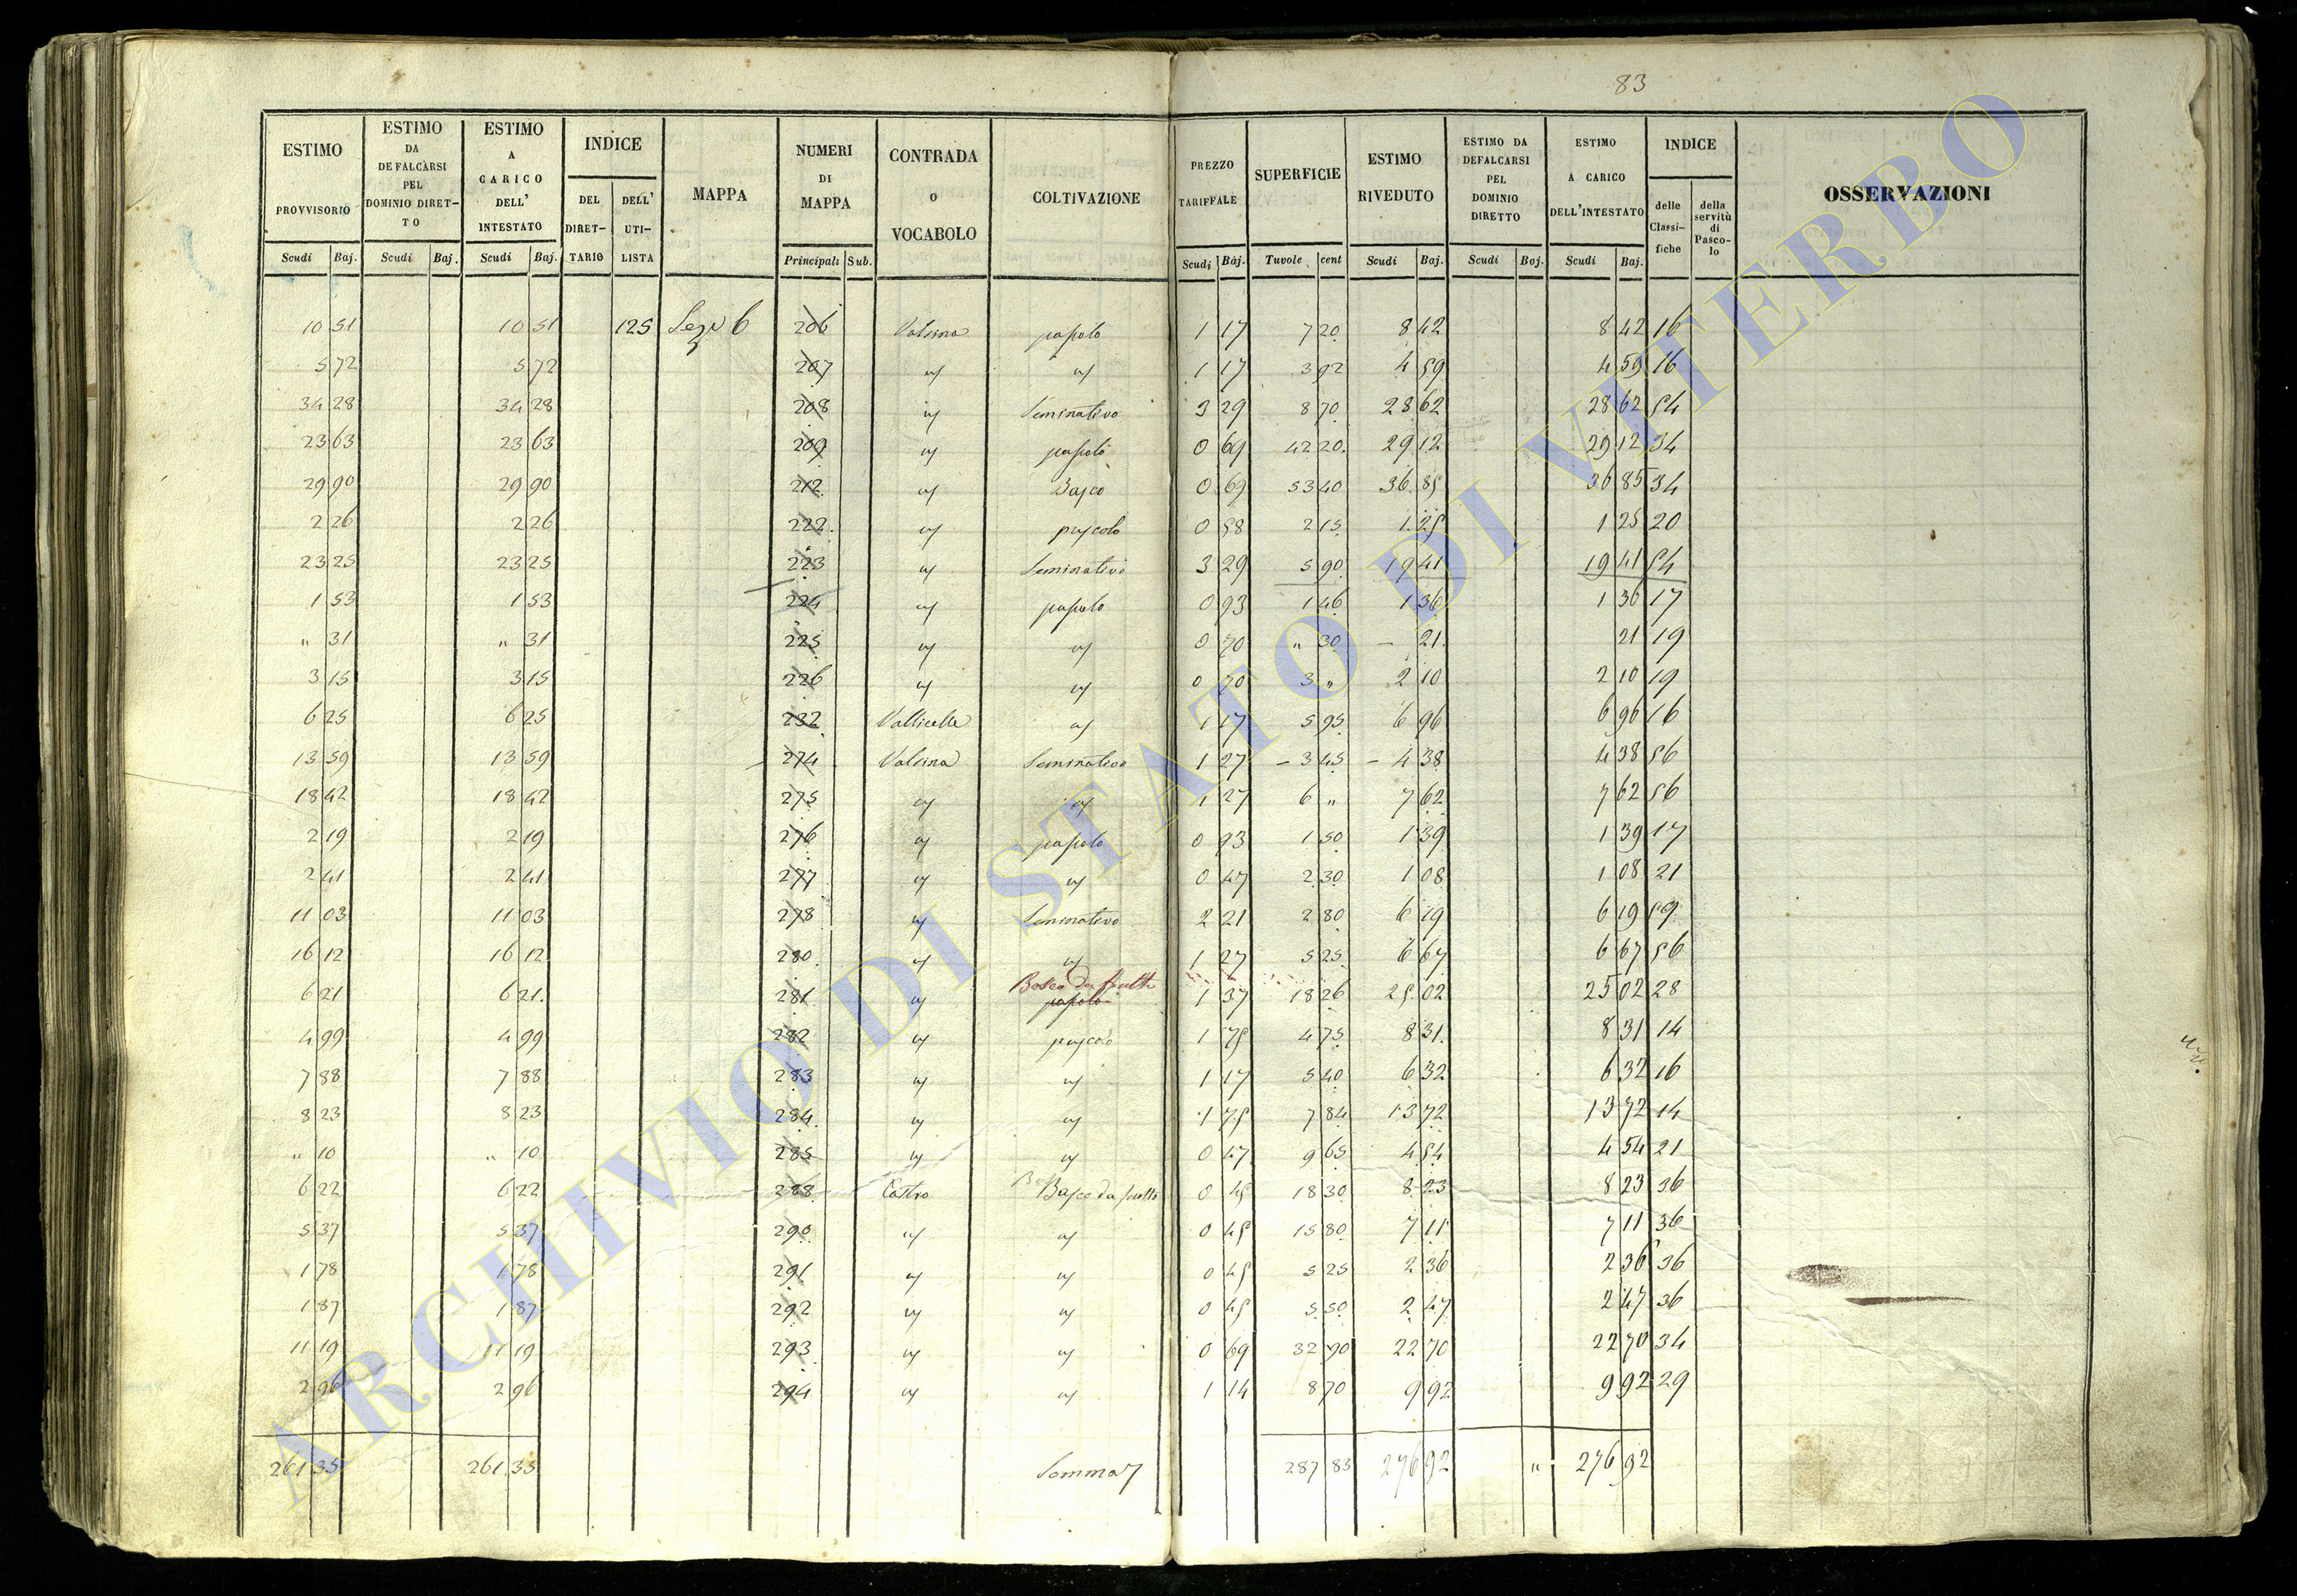 83
ESTIMO PROVVISORIO Scudi Baj.
ESTIMO DA DEFALCARSI PEL DOMINIO DIRETTO Scudi Baj.
ESTIMO A CARICO DELL' INTESTATO Scudi Baj.
INDICE DEL DIRETTARIO DELL' UTILISTA
MAPPA
NUMERI DI MAPPA Principali Sub.
CONTRADA O VOCABOLO
COLTIVAZIONE
PREZZO TARIFFALE Scudi Baj.
SUPERFICIE Tavole cent
ESTIMO RIVEDUTO Scudi Baj.
ESTIMO DA DEFALCARSI PEL DOMINIO DIRETTO Scudi Baj.
ESTIMO A CARICO DELL'INTESTATO Scudi Baj.
INDICE delle Classifiche della servitù di Pascolo
OSSERVAZIONI
10 51 10 51 125 Sezne 6 206 Valsina pascolo 1 17 7 20 8 42 8 42 16
5 72 5 72 207 " " 1 17 3 92 4 59 4 59 16
34 28 34 28 208 " Seminativo 3 29 8 70 28 62 28 62 54
23 63 23 63 209 " pascolo 0 69 42 20 29 12 29 12 34
29 90 29 90 212 " Bosco 0 69 53 40 36 85 36 85 34
2 26 2 26 222 " pascolo 0 58 2 15 1 25 1 25 20
23 25 23 25 223 " Seminativo 3 29 5 90 19 41 19 41 54
1 53 1 53 224 " pascolo 0 93 1 46 1 36 1 36 17
" 31 " 31 225 " " 0 70 " 30 – 21 21 19
3 15 3 15 226 " " 0 70 3 " 2 10 2 10 19
6 25 6 25 232 Vallicelle " 1 17 5 95 6 96 6 96 16
13 59 13 59 274 Valsina Seminativo 1 27 – 3 45 – 4 38 4 38 56
18 42 18 42 275 " " 1 27 6 " 7 62 7 62 56
2 19 2 19 276 " pascolo 0 93 1 50 1 39 1 39 17
2 41 2 41 277 " " 0 47 2 30 1 08 1 08 21
11 03 11 03 278 " Seminativo 2 21 2 80 6 19 6 19 59
16 12 16 12 280 " " 1 27 5 25 6 67 6 67 56
6 21 6 21 281 " Bosco da frutto pascolo 1 37 18 26 25 02 25 02 28
4 99 4 99 282 " pascolo 1 75 4 75 8 31 8 31 14
7 88 7 88 283 " " 1 17 5 40 6 32 6 32 16
8 23 8 23 284 " " 1 75 7 84 13 72 13 72 14
" 10 " 10 285 " " 0 47 9 65 4 54 4 54 21
6 22 6 22 288 Castro Bosco da frutto 0 45 18 30 8 23 8 23 36
5 37 5 37 290 " " 0 45 15 80 7 11 7 11 36
1 78 1 78 291 " " 0 45 5 25 2 36 2 36 36
1 87 1 87 292 " " 0 45 5 50 2 47 2 47 36
11 19 11 19 293 " " 0 69 32 90 22 70 22 70 34
2 96 2 96 294 " " 1 14 8 70 9 92 9 92 29
261 35 261 35 Somma 287 83 276 92 " 276 92
ARCHIVIO DI STATO DI VITERBO